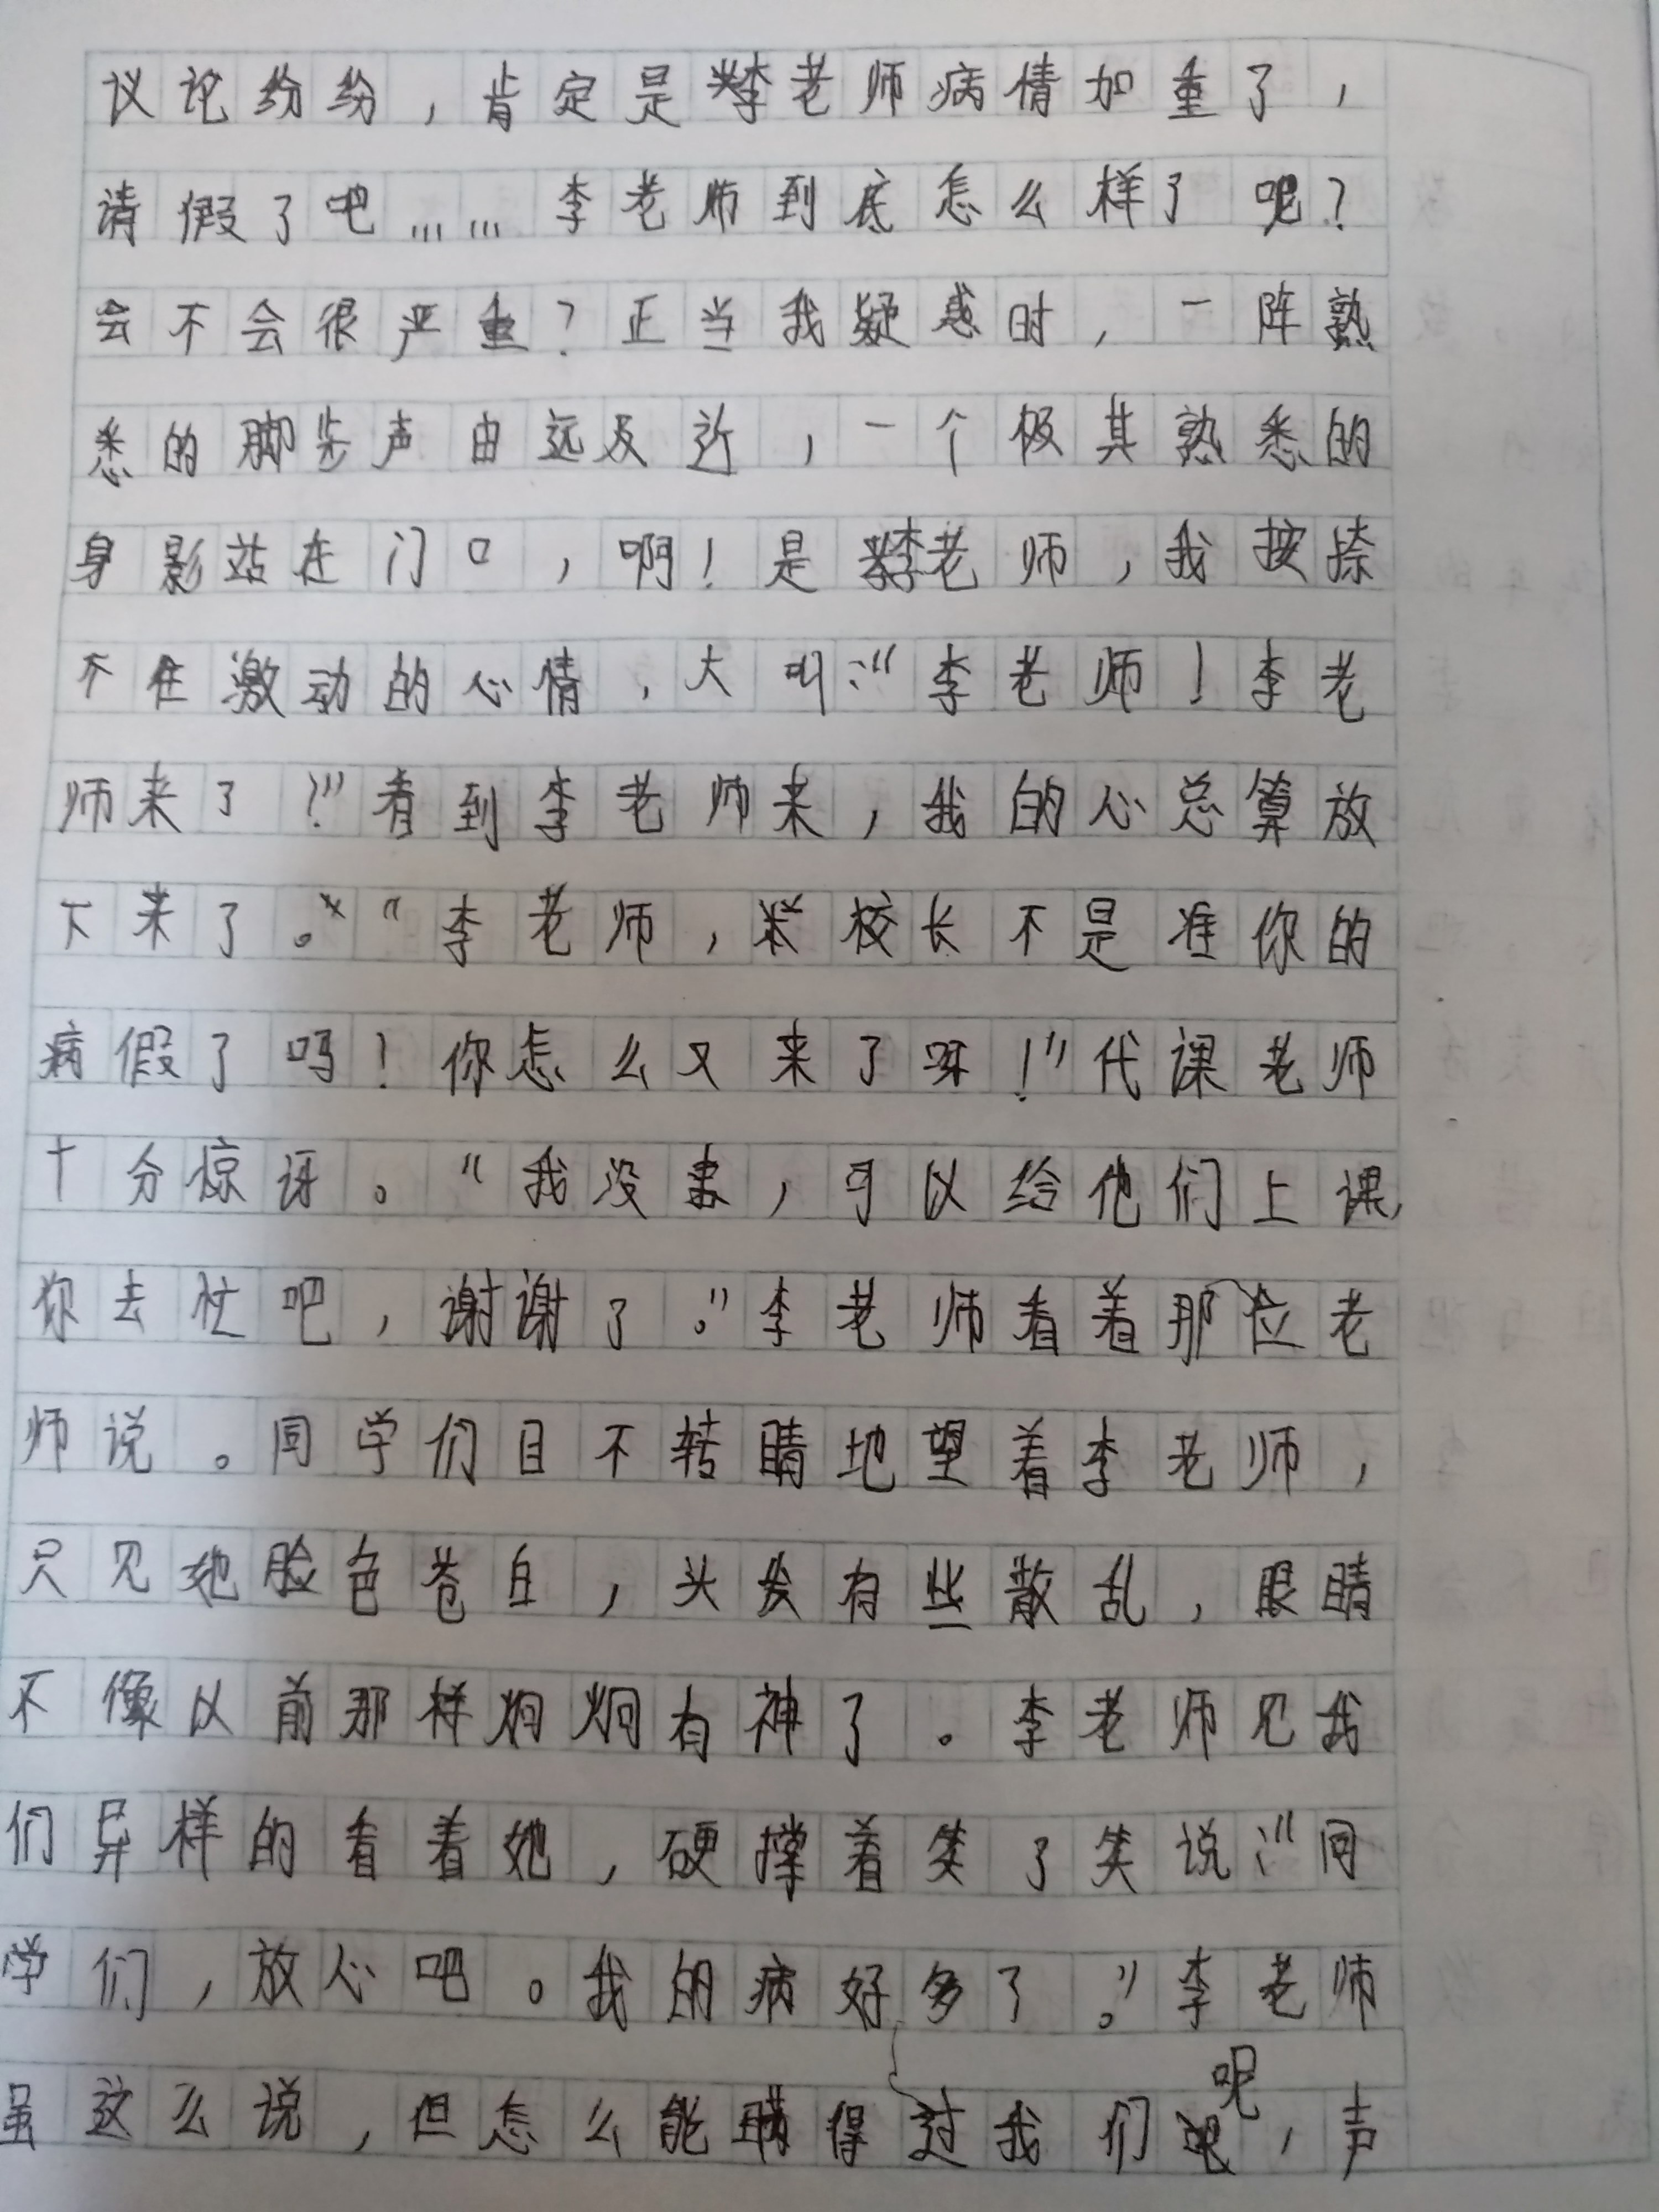 议论纷纷，肯定是李老师病情加重了，
请假了吧……李老师到底怎么样了呢？
会不会很严重？正当我疑惑时，一阵熟
悉的脚步声由远及近，一个极其熟悉的
身影站在门口，啊！是李老师，我按捺
不住激动的心情，大叫：“李老师！李老
师来了！”看到李老师来，我的心总算放
下来了。“李老师，校长不是准你的
病假了吗！你怎么又来了呀！”代课老师
十分惊讶。“我没事，可以给他们上课，
你去忙吧，谢谢了。”李老师看着那位老
师说。同学们目不转睛地望着李老师，
只见她脸色苍白，头发有些散乱，眼睛
不像以前那样炯炯有神了。李老师见我
们异样的看着她，硬撑着笑了笑说：“同
学们，放心吧。我的病好多了。”李老师
虽这么说，但怎么能瞒得过我们呢，声